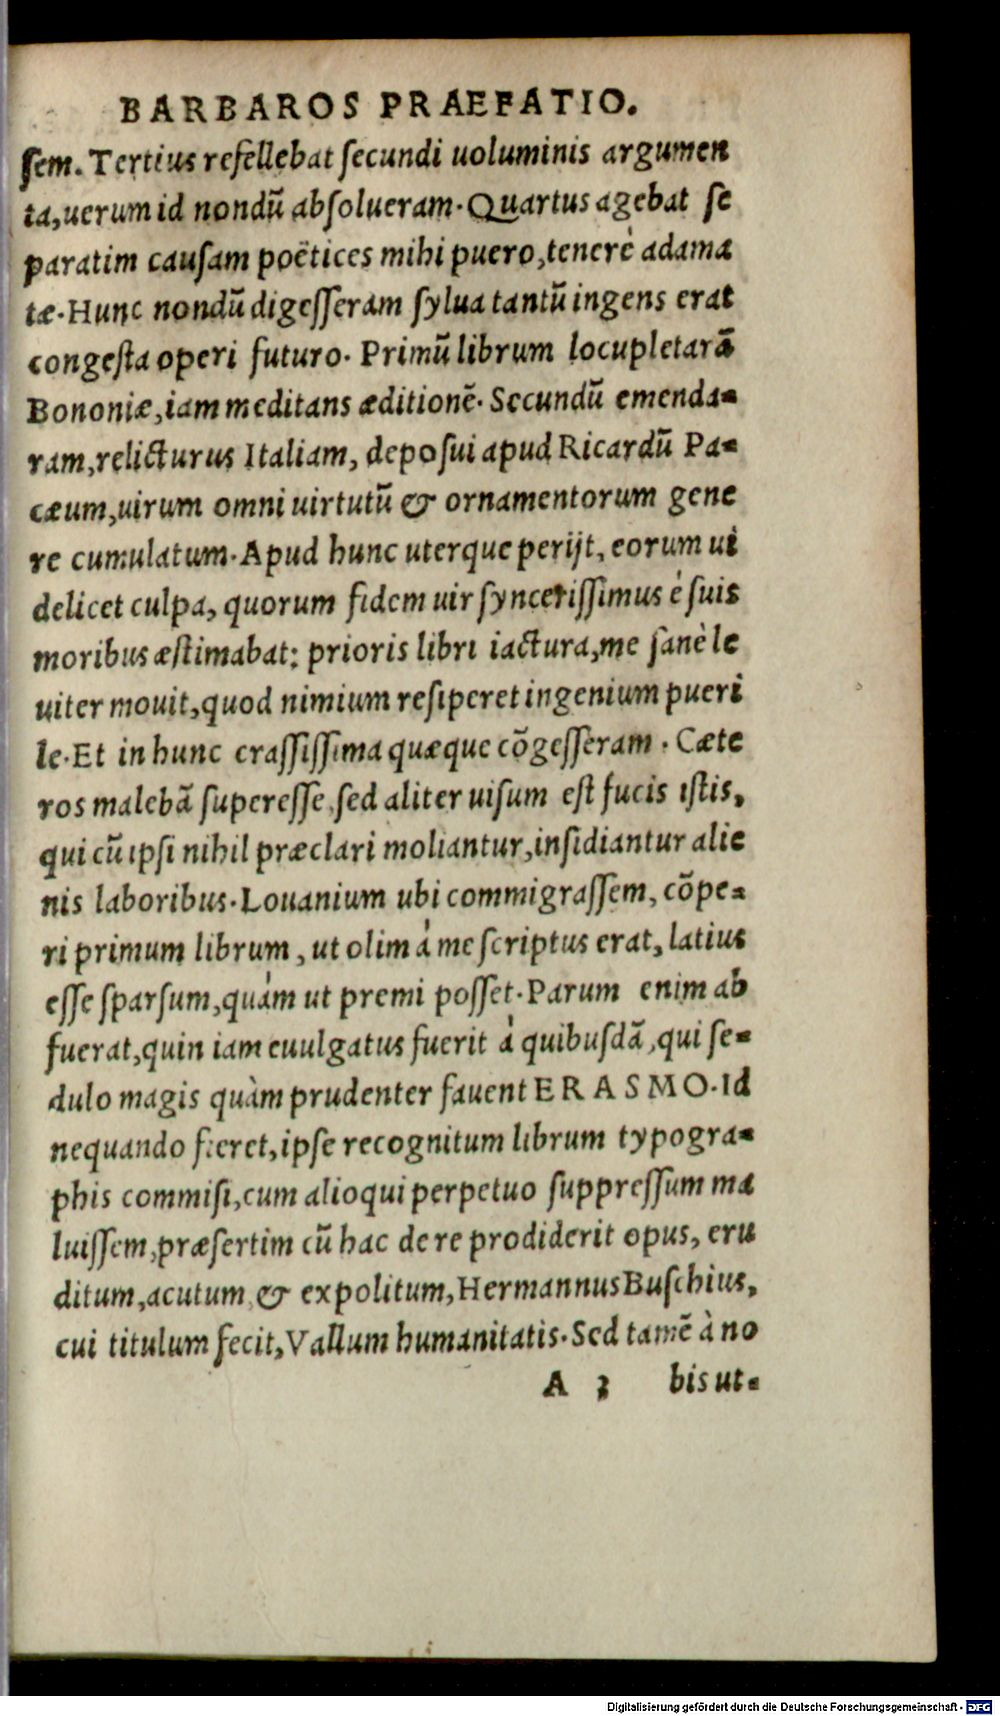 BARBAROS PRAEFATIO.
sem. Tertius refellebat secundi uoluminis argumen
ta, uerum id nondū absolueram. Quartus agebat se
paratim causam poëtices mihi puero, tenerè adama
tæ. Hunc nondū digesseram sylua tantū ingens erat
congesta operi futuro. Primū librum locupletarā
Bononiæ, iam meditans æditionē. Secundū emenda-
ram, relicturus Italiam, deposui apud Ricardū Pa-
cæum, uirum omni uirtutū & ornamentorum gene
re cumulatum. Apud hunc uterque perijt, eorum ui
delicet culpa, quorum fidem uir syncerissimus è suis
moribus æstimabat: prioris libri iactura, me sanè le
uiter mouit, quod nimium resiperet ingenium pueri
le. Et in hunc crassissima quæque cōgesseram. Cæte
ros malebā superesse, sed aliter uisum est fucis istis,
qui cū ipsi nihil præclari moliantur, insidiantur alie
nis laboribus. Louanium ubi commigrassem, cōpe-
ri primum librum, ut olim à me scriptus erat, latius
esse sparsum, quàm ut premi posset. Parum enim ab
fuerat, quin iam euulgatus fuerit à quibusdā, qui se-
dulo magis quàm prudenter fauent ERASMO. Id
nequando fieret, ipse recognitum librum typogra-
phis commisi, cum alioqui perpetuo suppressum ma
luissem, præsertim cū hac de re prodiderit opus, eru
ditum, acutum, & expolitum, Hermannus Buschius,
cui titulum fecit, Vallum humanitatis. Sed tamē à no
A 3 bis ut-
Digitalisierung gefördert durch die Deutsche Forschungsgemeinschaft - DFG